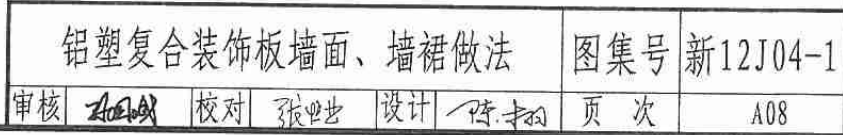 铝塑复合装饰板墙面、墙裙做法 图集号 新12J04-1
审核 校对 设计 页次 A08